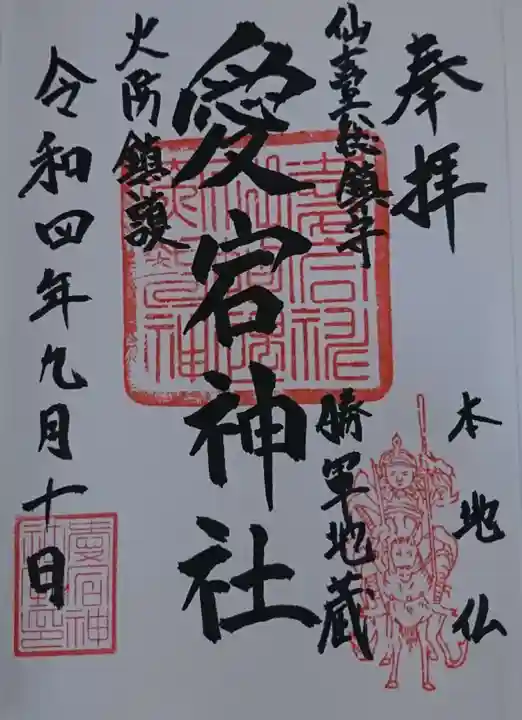 奉拝
本地仏
仙臺総鎮守
勝軍地蔵
愛宕神社
火防鎮護
令和四年九月十日